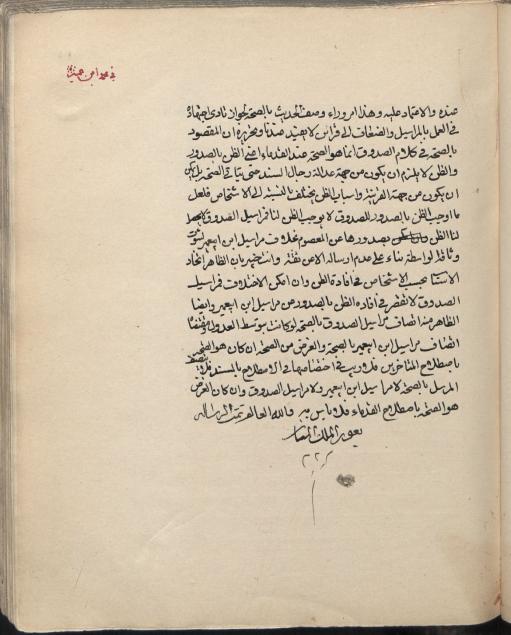 في محمد ابن
عنده والاعتماد عليه وهذا امر وراء وصف الحديث بالصحة لجواز تادي اجتهاده
في العمل بالمراسيل والضعاف الى قرائن لا يفيد عندنا وتحريره ان المقصود
بالصحة في كلام الصدوق انما هو الصحة عند القدماء اعني الظن بالصدور
والظن لا يلزم ان يكون من جهة عدالة رجال السند حتى يتاتى الصحة بل يمكن
ان يكون من جهة القرينة واسباب الظن يختلف بالنسبة الى الاشخاص فلعل
ما اوجب الظن بالصدور للصدوق لا يوجب الظن لنا فمراسيل الصدوق لا يحصل
لنا الظن بصدورها عن المعصوم بخلاف مراسيل ابن ابيعمير لثبوت
وثاقة الواسطة بناء على عدم ارساله الا عن ثقة وانت خبير بان الظاهر اتحاد
الاسباب بحسب الاشخاص في افادة الظن وان امكن الاختلاف فمراسيل
الصدوق لا تقصر في افادة الظن بالصدور عن مراسيل ابن ابيعمير وايضا
الظاهر منه اتصاف مراسيل الصدوق بالصحة لو كانت بتوسط العدول ومقتضاه
اتصاف مراسيل ابن ابيعمير بالصحة والغرض من الصحة ان كان هو الصحة
باصطلاح المتاخرين فلا ريب في اختصاصها في الاصطلاح بالمسند فلا يتصف
المرسل بالصحة لا مراسيل ابن ابيعمير ولا مراسيل الصدوق وان كان الغرض
هو الصحة باصطلاح القدماء فلا باس به والله العالم تمت الرسالة
بعون الملك